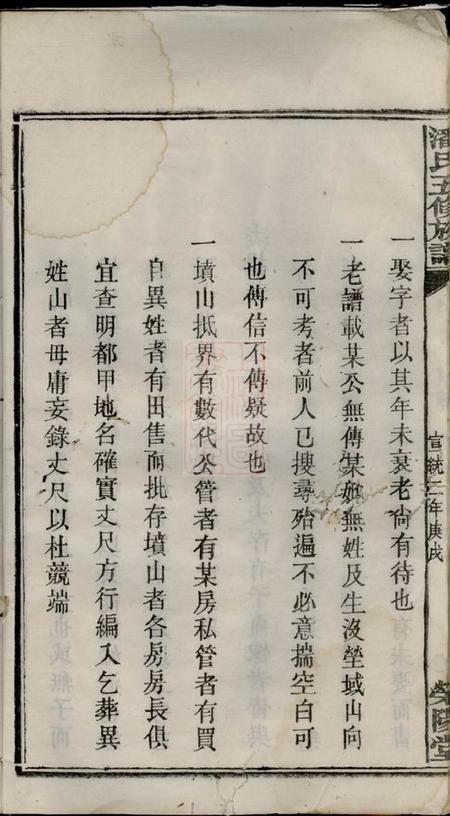 潘氏五修族譜
宣統二年庚戌
滎陽堂
一娶字者以其年未衰老尙有待也
一老譜載某公無傳某妣無姓及生沒塋域山向
不可考者前人已搜尋殆遍不必意揣空白可
也傳信不傳疑故也
一墳山抵界有數代公管者有某房私管者有買
自異姓者有田售而批存墳山者各房房長俱
宜查明都甲地名確實丈尺方行編入乞葬異
姓山者毋庸妄錄丈尺以杜競端